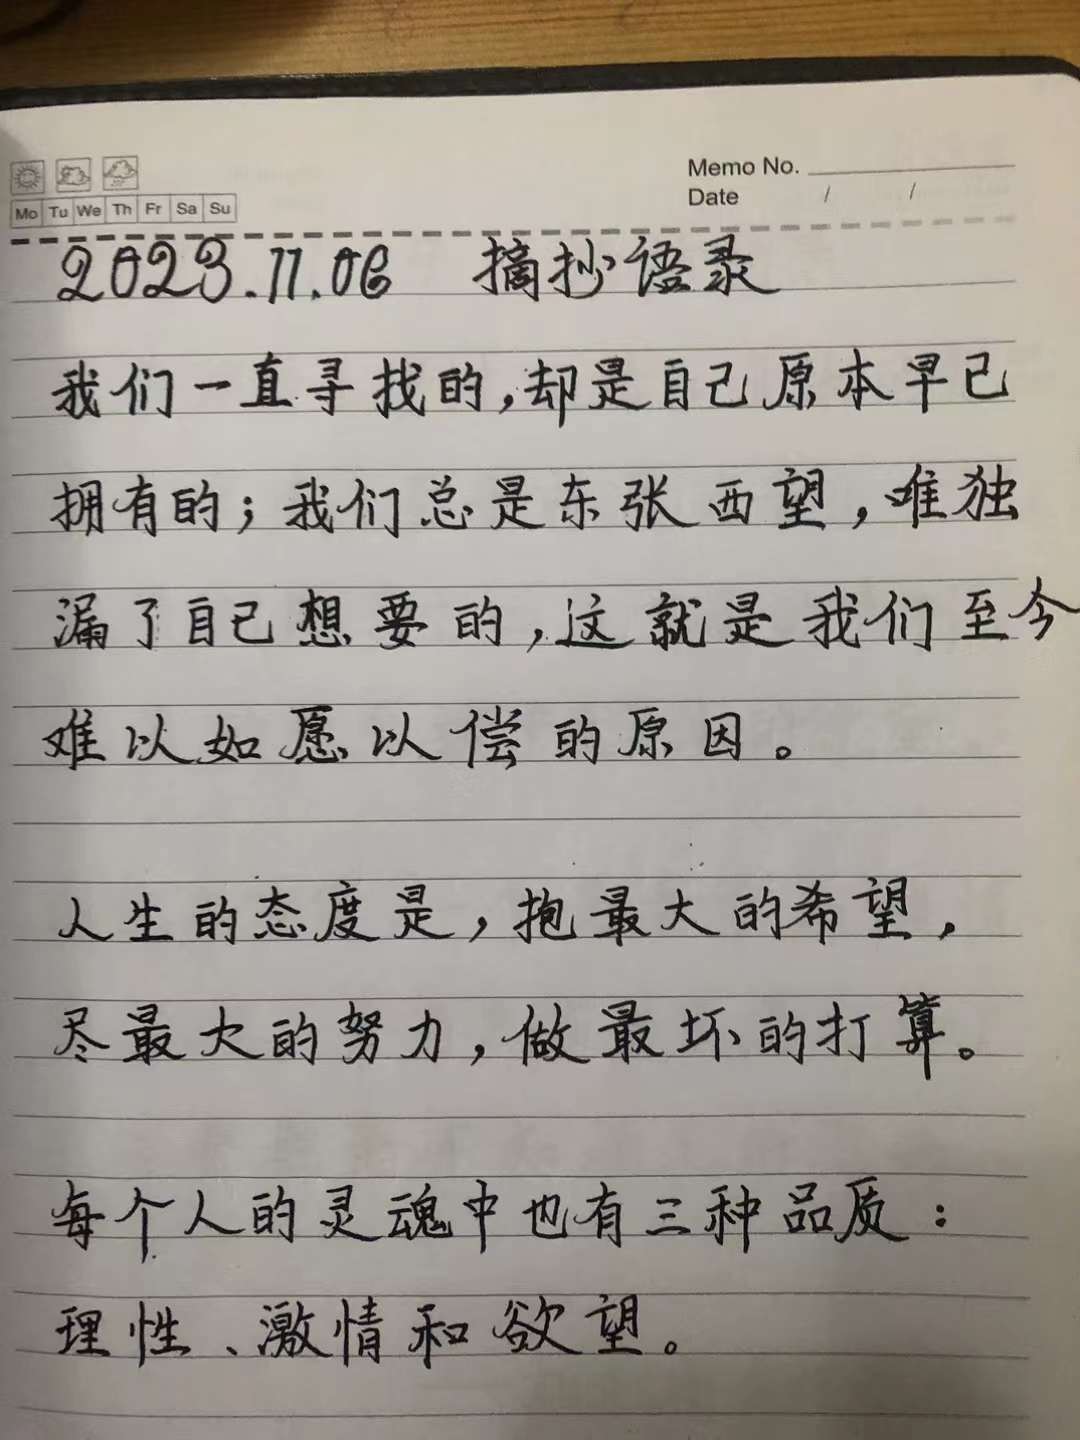 Memo No.
Mo Tu We Th Fr Sa Su
Date / /
2023.11.06 摘抄语录
我们一直寻找的,却是自己原本早已
拥有的;我们总是东张西望,唯独
漏了自己想要的,这就是我们至今
难以如愿以偿的原因。
人生的态度是,抱最大的希望,
尽最大的努力,做最坏的打算。
每个人的灵魂中也有三种品质:
理性、激情和欲望。